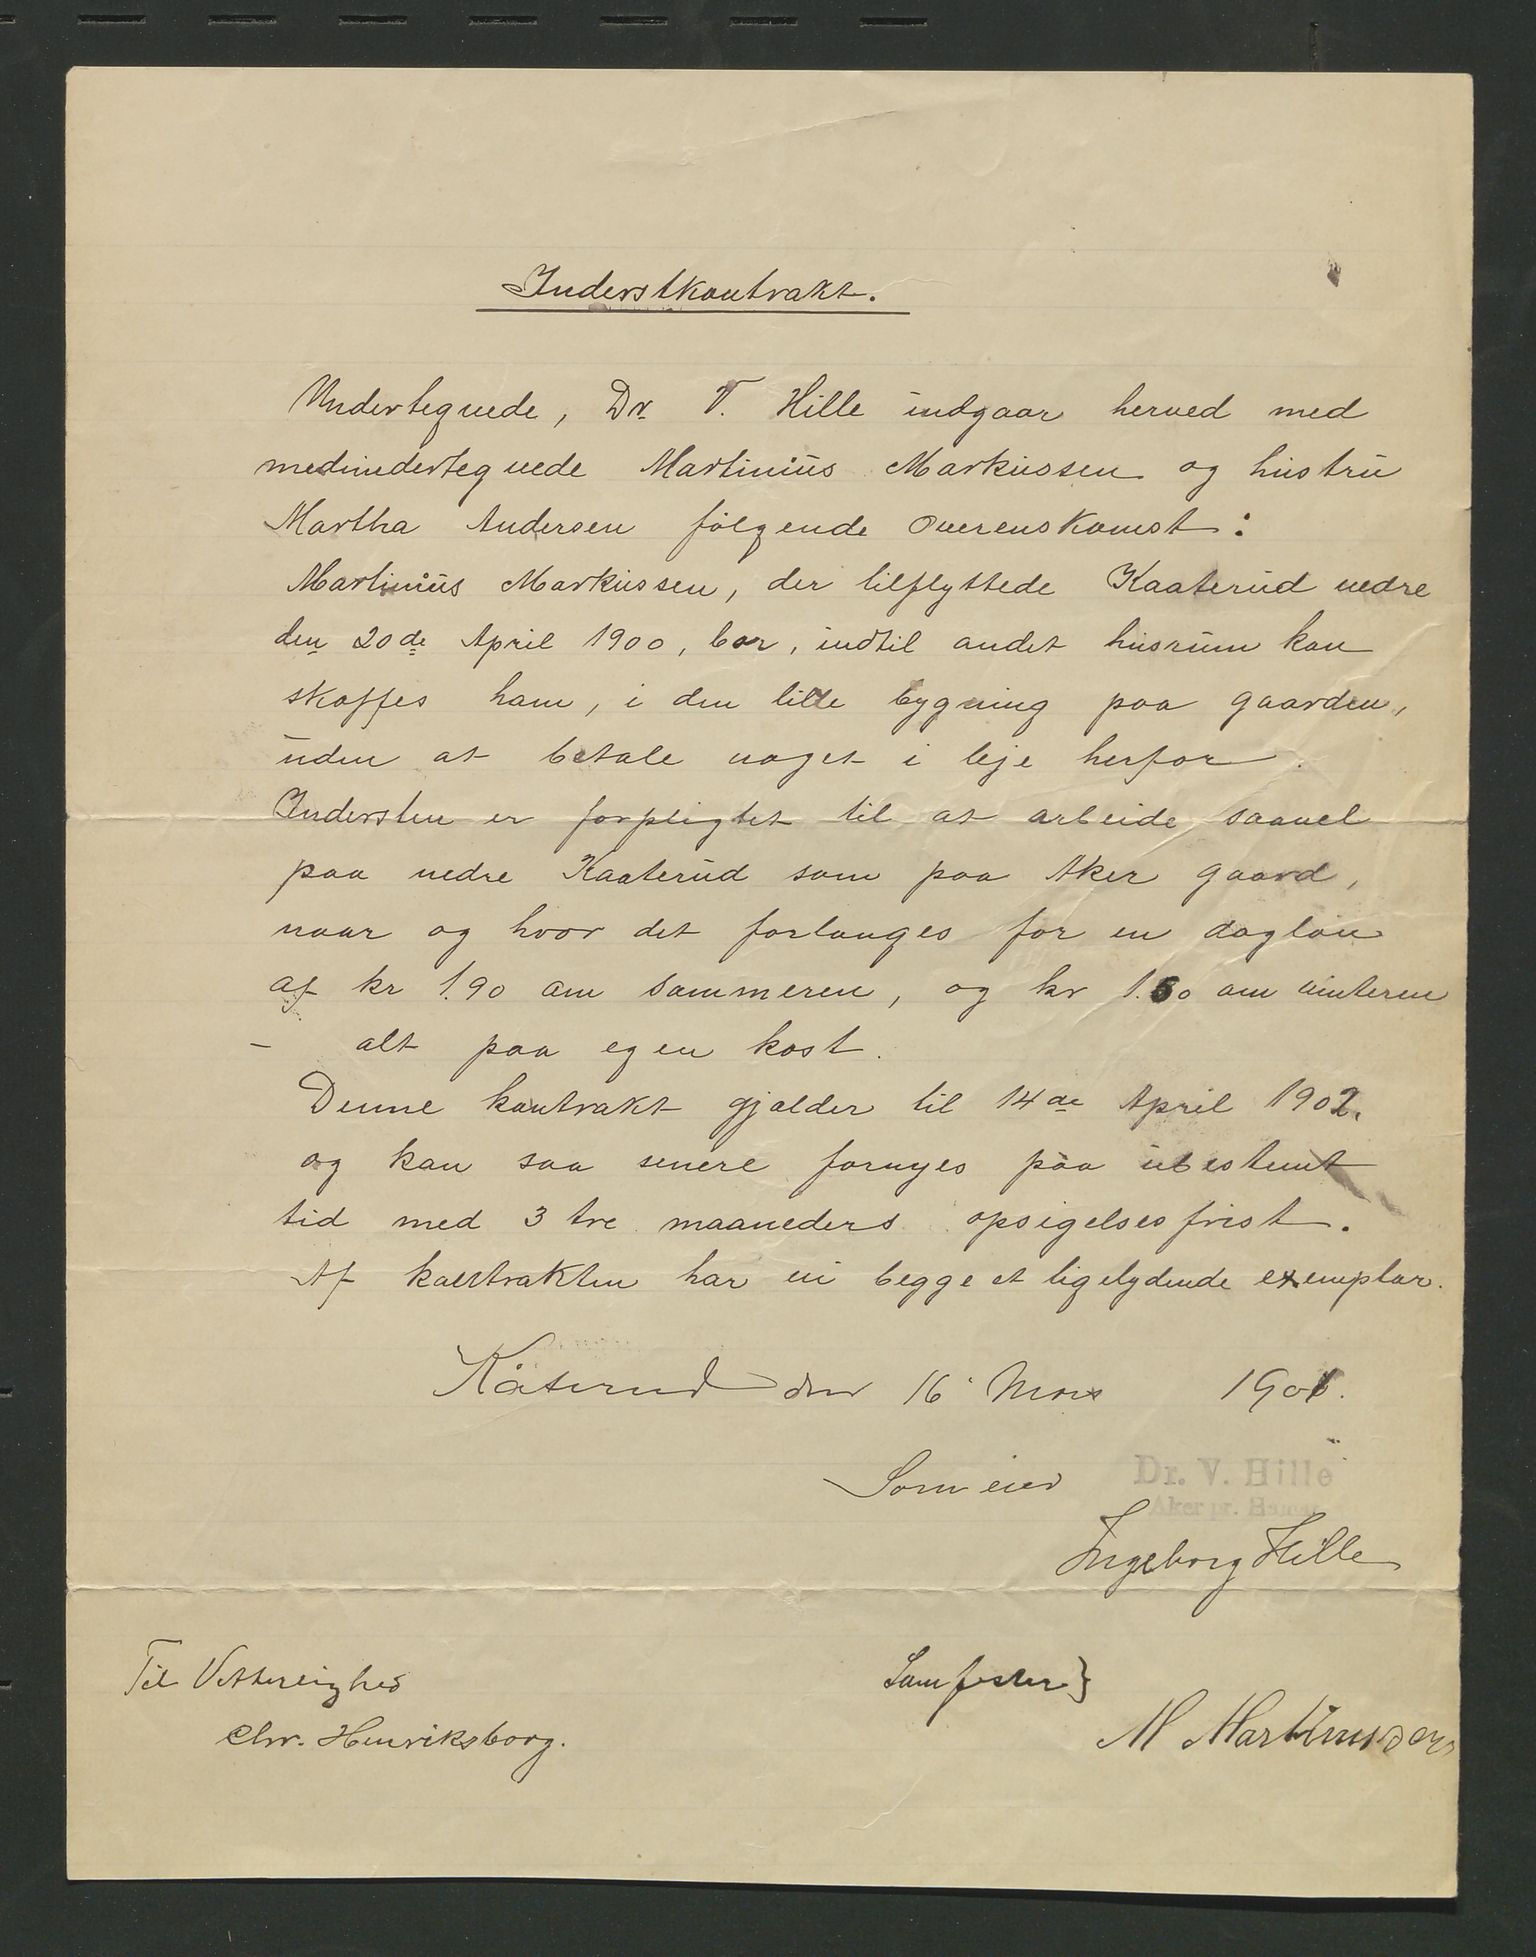 Inderstkontrakt.
Undertegnede, Dr. V. Hille indgaar herved med
medundertegnede Martinius Markussen og hustru
Martha Andersen følgende Overenskomst:
Martinius Markussen, der tilflyttede Kaaterud nedre
den 20de April 1900, bor, indtil andet husrum kan
skaffes ham, i den lille bygning paa gaarden,
uden at betale noget i leje herfor.
Indersten er forpligtet til at arbeide saavel
paa nedre Kaaterud som paa Aker gaard,
naar og hvor det forlanges for en dagløn
af kr 1.90 om sommeren, og kr 1.60 om vinteren
- alt paa egen kost.
Denne kontrakt gjælder til 14de April 1902.
og kan saa senere fornyes paa ubestemt
tid med 3 tre maaneders opsigelsesfrist.
Af kontrakten har vi begge et ligelydende exemplar.
Kåterud den 16 Mars 1901.
Som eier Dr. V. Hille
Aker pr. Hamar
Ingeborg Hille
Til Vitterlighed Som fester}
Chr. Henriksborg. M Martinussen